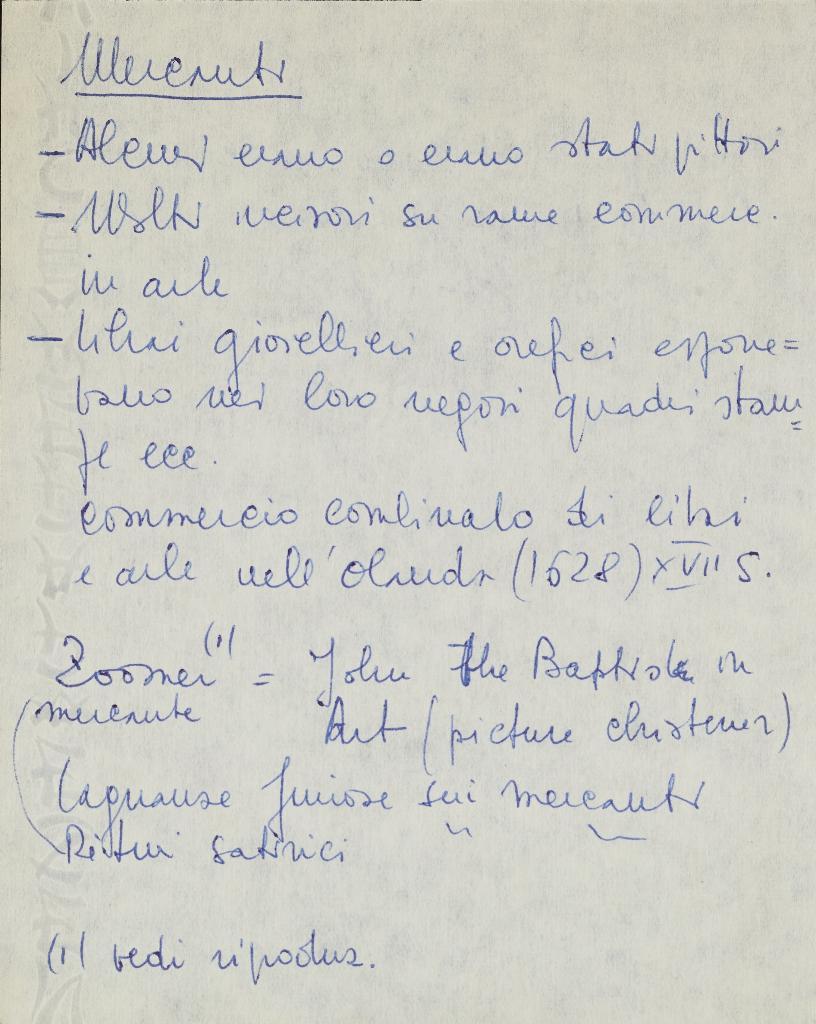 Mercanti
- Alcuni erano o erano stati pittori
- Molti incisori su rame commerc.
in arte
- Librai gioiellieri e orefici espone=
vano nei loro negozi quadri stam=
pe ecc.
commercio combinato di libri
e arte nell'Olanda (1628) XVII S.
Zoomer (1) = John the Baptist in
mercante Art (picture christener)
Lagnanze furiose sui mercanti
Ritmi satirici
(1) vedi riproduz.